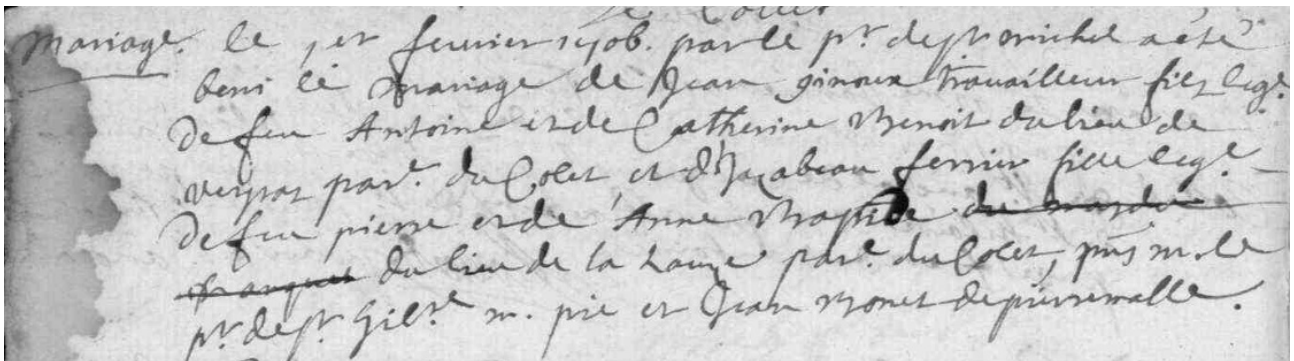 Le Collet
Mariage. le 1er feurier 1706. par le pr. de st michel a été
beni le mariage de Jean ginoux travailleur filz leg.e
de feu Antoine et de Catherine Benoit du lieu de
par.e du Colet, et d'Isabeau ferrier fille leg.e
de feu pierre et de Anne
du lieu de la Lauze par.e du Colet, pns m. le
pr. de st. hil.re m. pie et Jean Bonet de pierremalle.